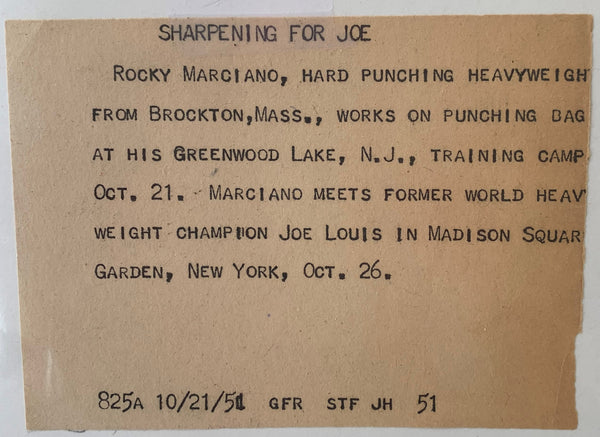 SHARPENING FOR JOE
ROCKY MARCIANO, HARD PUNCHING HEAVYWEIGH
FROM BROCKTON,MASS., WORKS ON PUNCHING BAG
AT HIS GREENWOOD LAKE, N.J., TRAINING CAMP
OCT. 21. MARCIANO MEETS FORMER WORLD HEAV
WEIGHT CHAMPION JOE LOUIS IN MADISON SQUAR
GARDEN, NEW YORK, OCT. 26.
825A 10/21/51 GFR STF JH 51